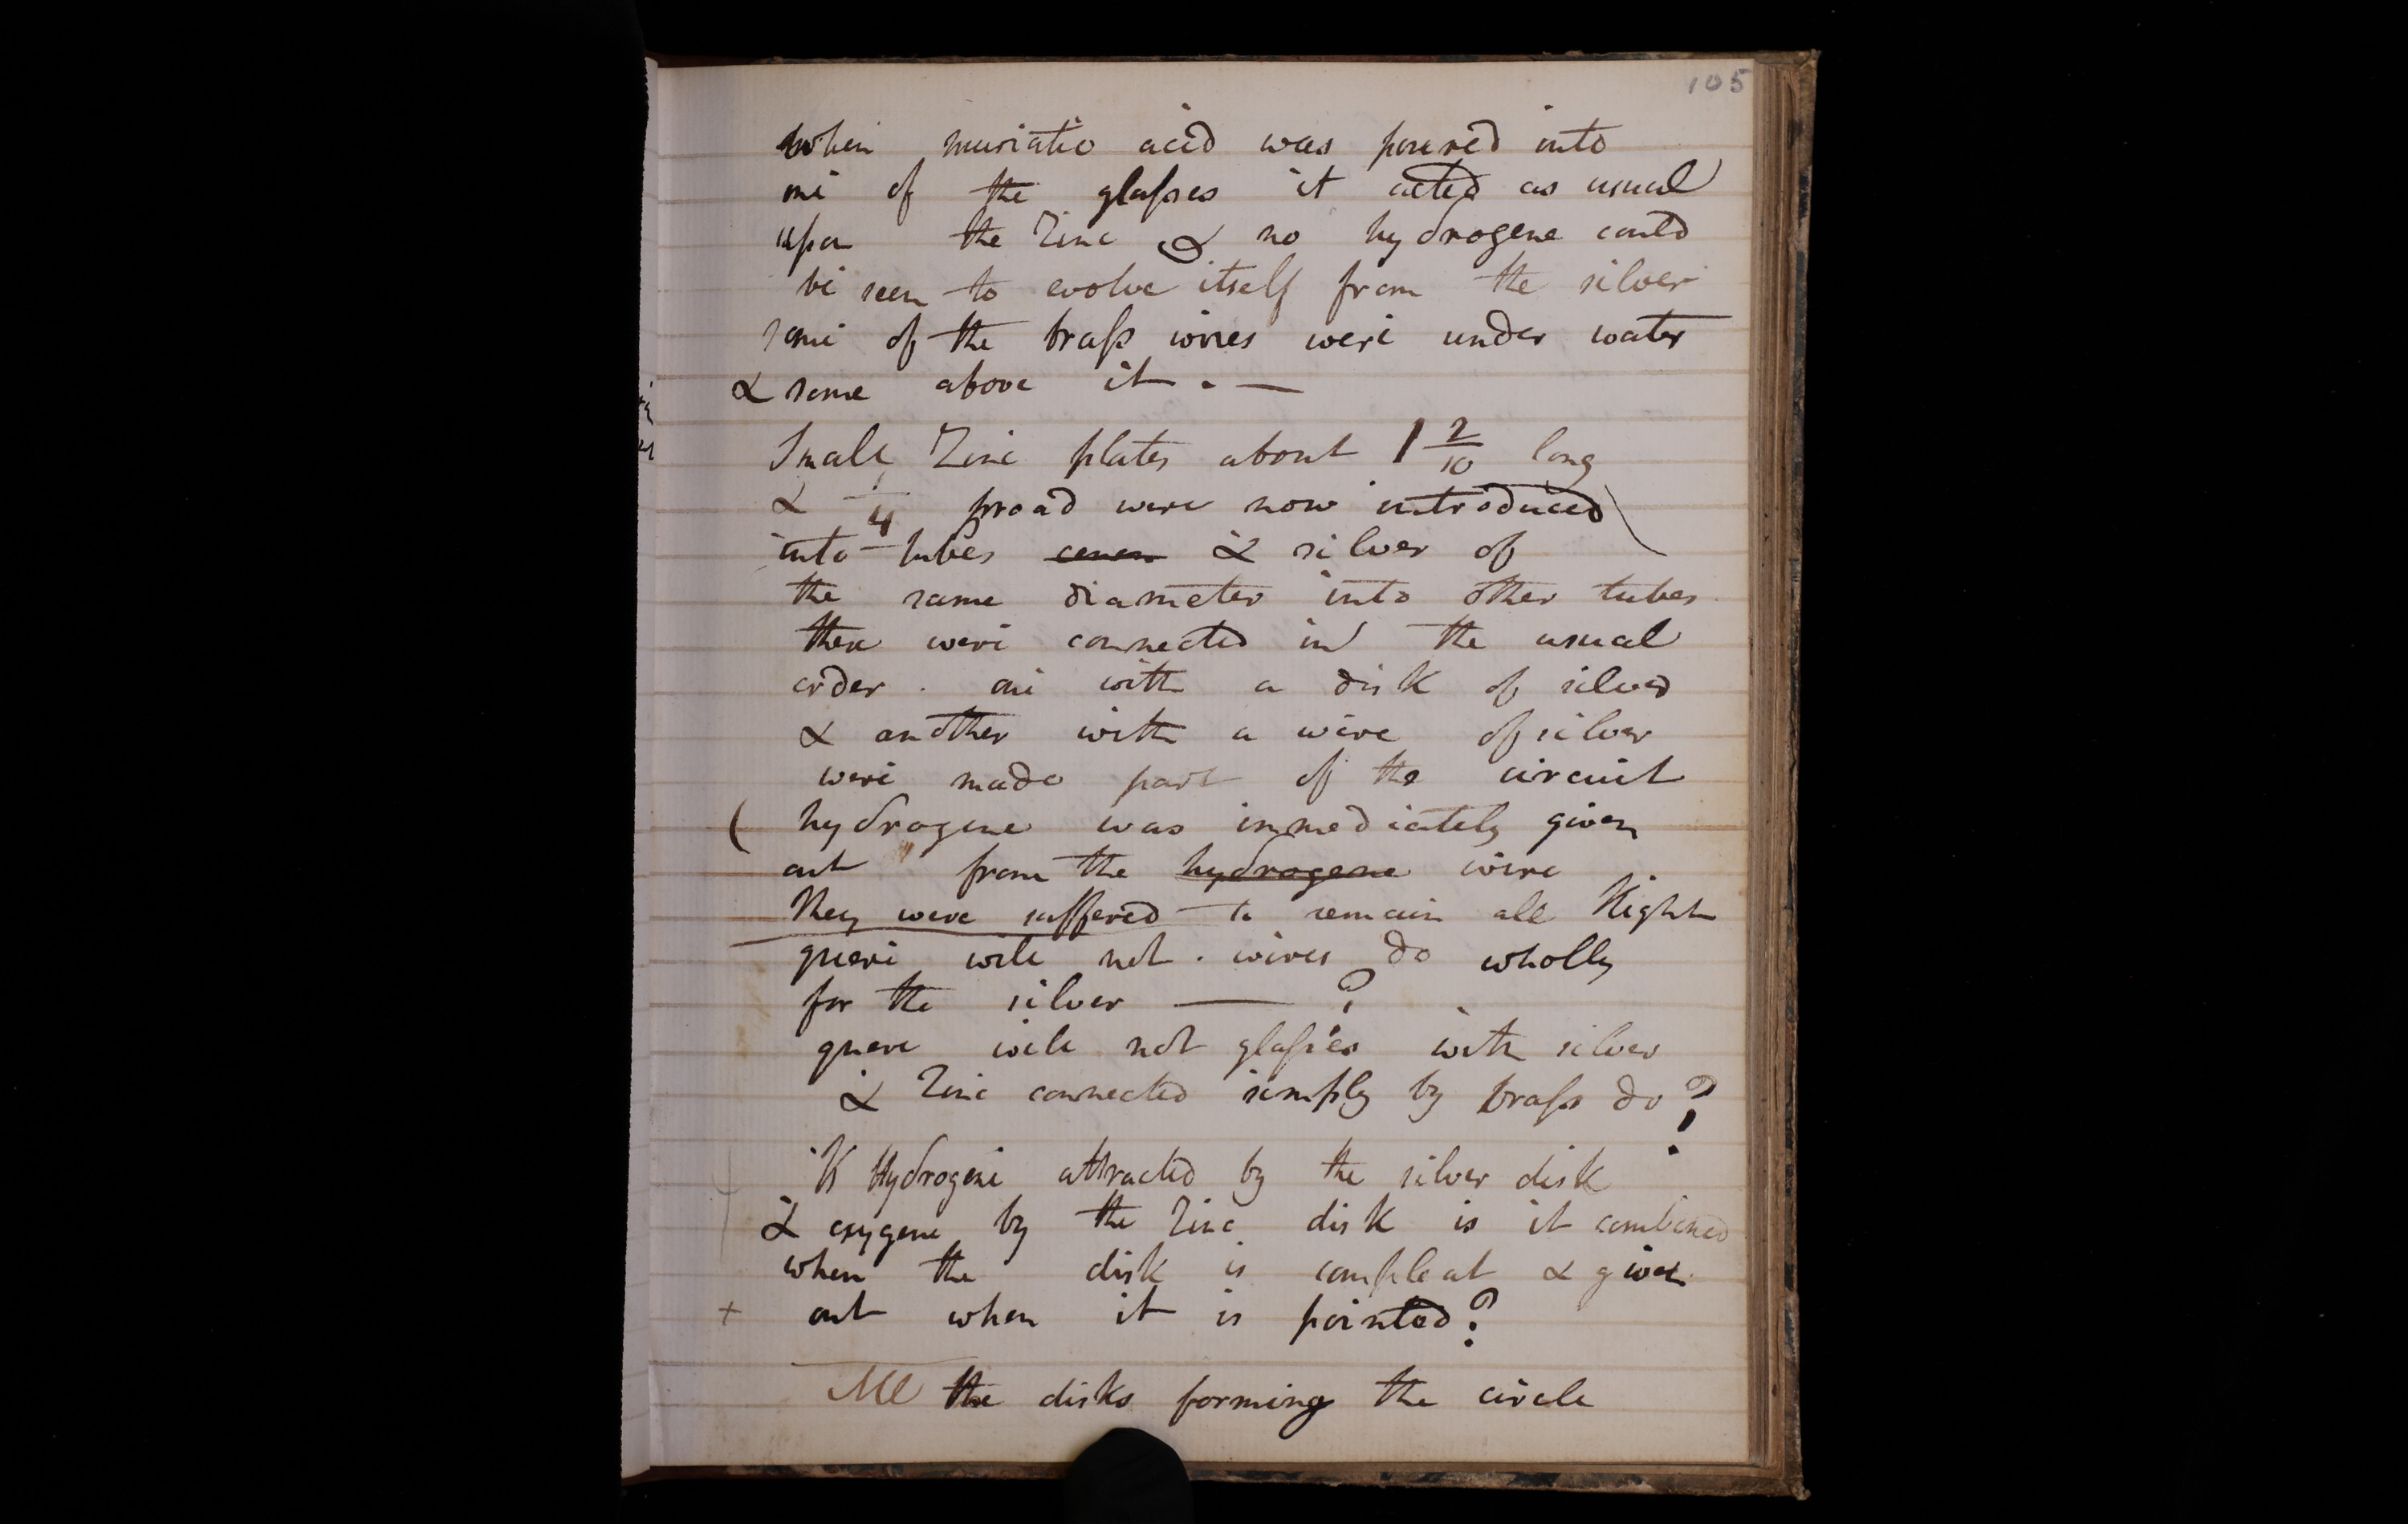 105
When muriatic acid was poured into
one of the glasses it acted as usual
upon the Zinc & no hydrogene could
be seen to evolve itself from the silver
some of the brass wires were under water
& some above it. —
Small Zinc plates about 1 2/10 long
& 1/4 broad were now introduced
into tubes & silver of
the same diameter into other tubes
these were connected in the usual
order. one with a disk of silver
& another with a wire of silver
were made part of the circuit
( hydrogene was immediately given
out from the hydrogene wire
They were suffered to remain all Night
quere will not wires do wholly
for the silver — ?
quere will not glasses with silver
& Zinc connected simply by brass do?
Is Hydrogene attracted by the silver disk
& oxygene by the Zinc disk is it combined
when the disk is compleat & given
+ out when it is pointed?
All the disks forming the circle